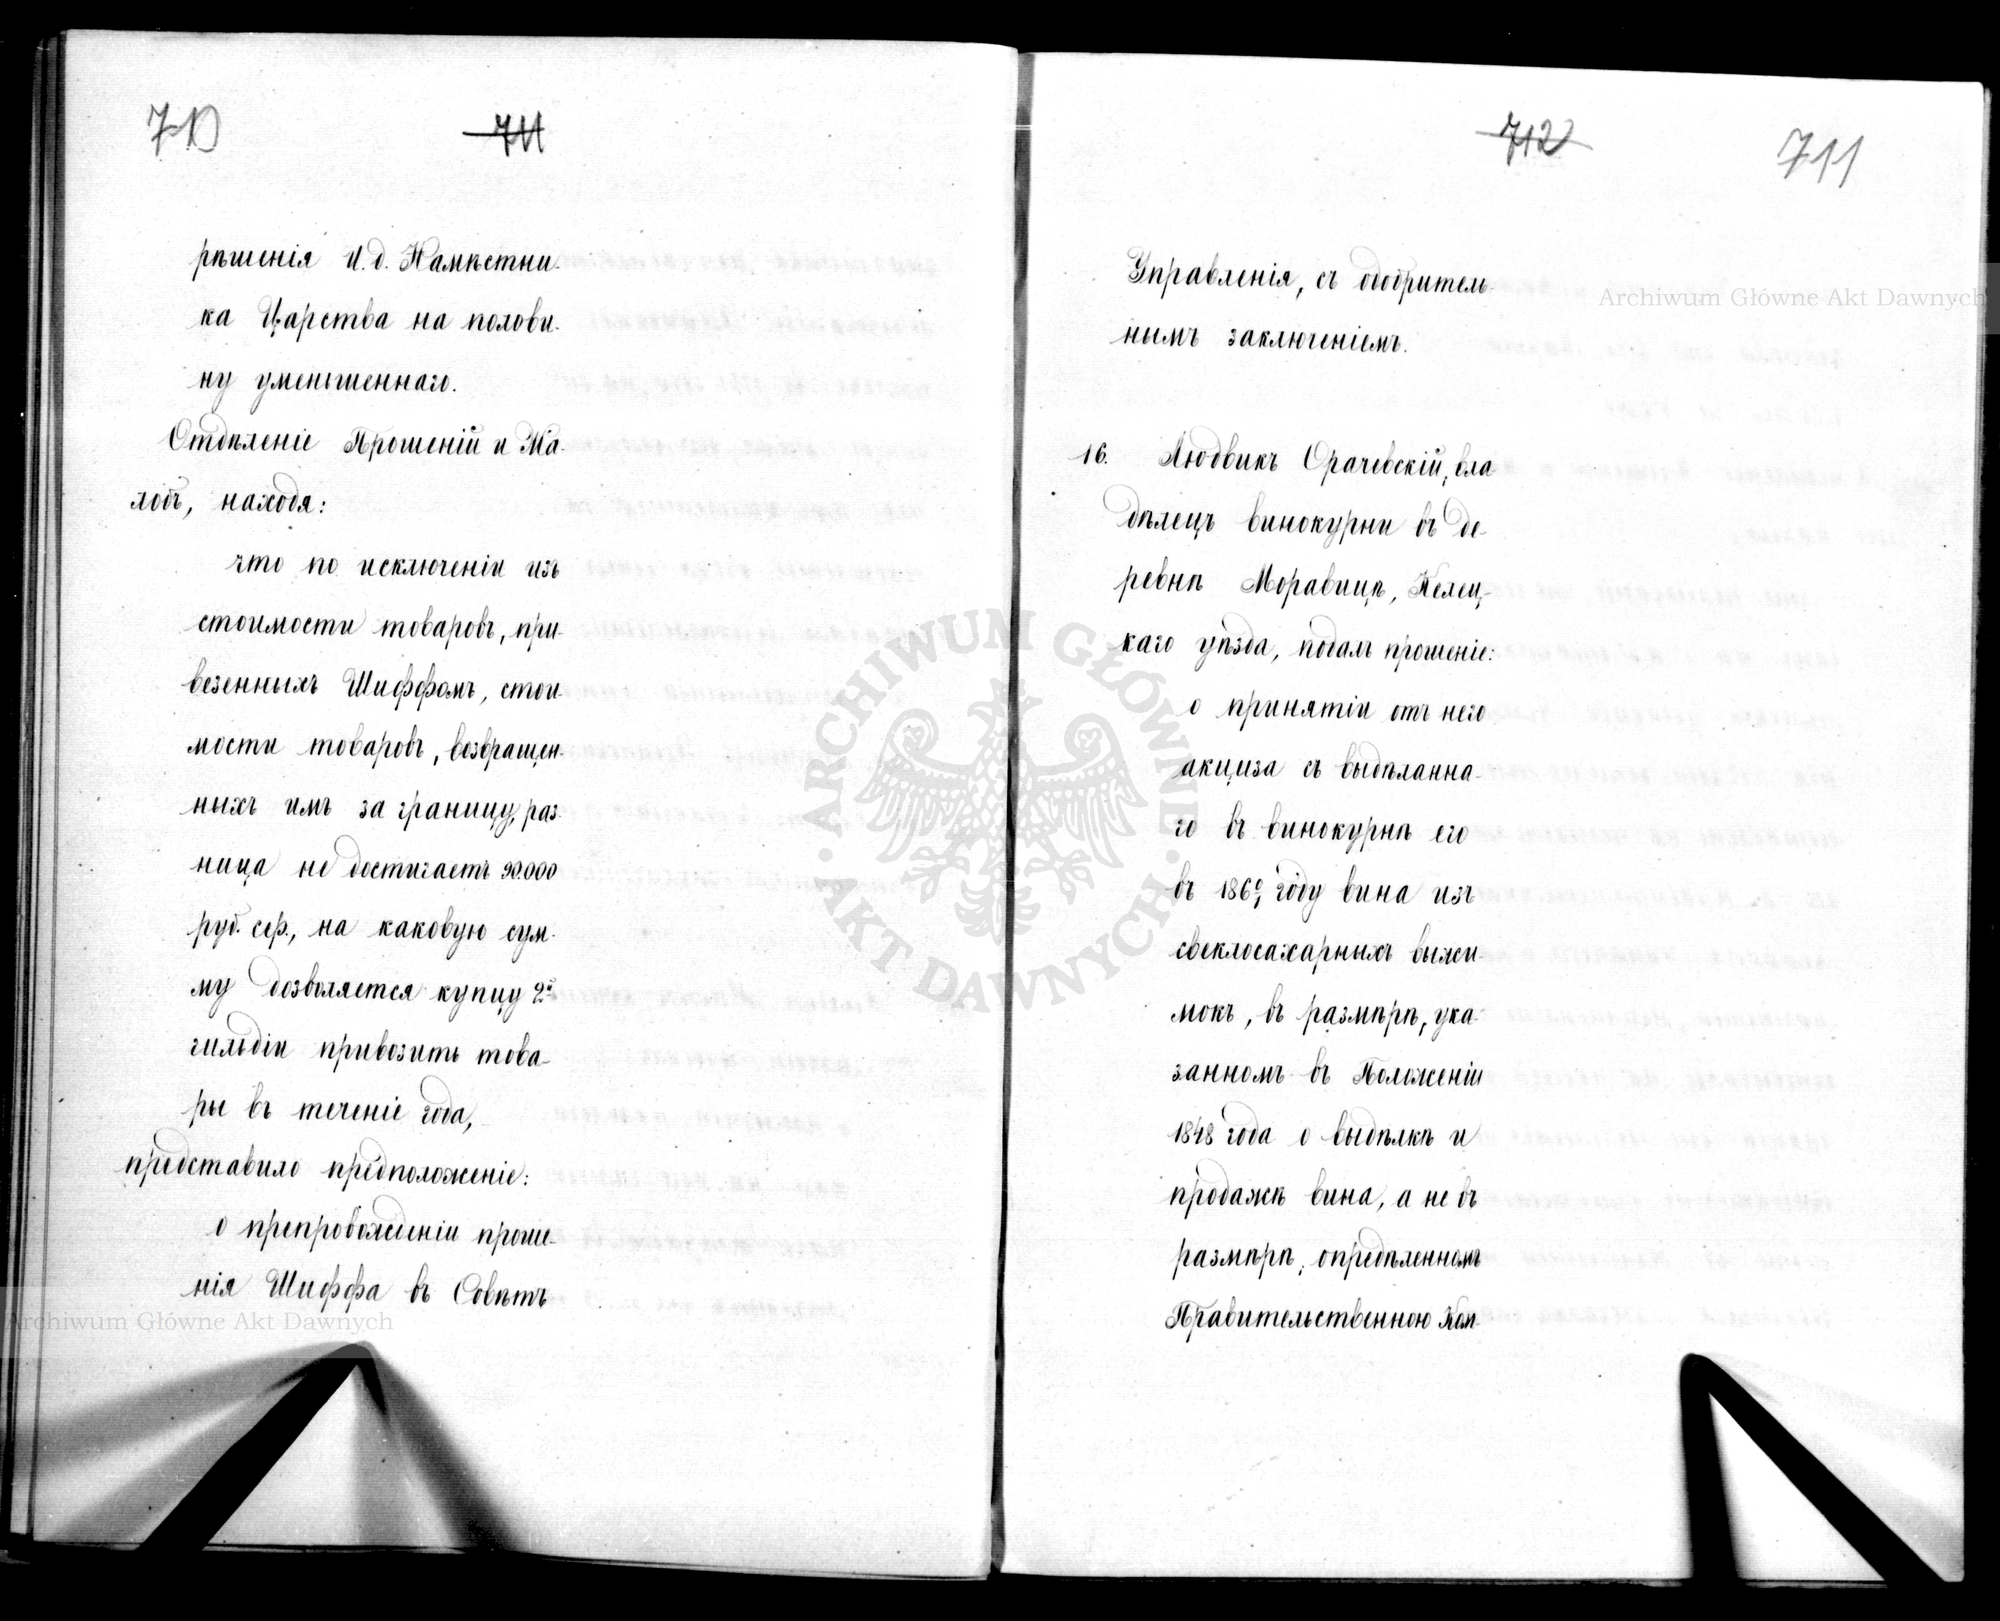 710 711
рѣшенія И. д. Намѣстни-
ка Царства на полови-
ну уменьшеннаго.
Отдѣленіе Прошеній и Жа-
лобъ, находя:
что по исключеніи изъ
стоимости товаровъ, при-
везенныхъ Шиффомъ, стои-
мости товаровъ, возвращен-
ныхъ имъ за границу, раз-
ница не достигаетъ 90.000
руб. сер., на каковую сум-
му дозволяется купцу 2й
гильдіи привозить това-
ры въ теченіе года,
представило предположеніе:
о препровожденіи проше-
нія Шиффа въ Совѣтъ
712 711
Управленія, съ одобритель-
нымъ заключеніемъ.
16. Людвикъ Орачевскій, вла-
дѣлецъ винокурни въ де-
ревнѣ Моравицѣ, Келец-
каго уѣзда, подалъ прошеніе:
о принятіи отъ него
акциза съ выдѣланна-
го въ винокурнѣ его
въ году вина изъ
свеклосахарныхъ выжи-
мокъ, въ размѣрѣ, ука-
занномъ въ Положеніи
1848 года о выдѣлкѣ и
продажѣ вина, а не въ
размѣрѣ, опредѣленномъ
Правительственною Ком-
Archiwum Główne Akt Dawnych
Archiwum Główne Akt Dawnych
· ARCHIWUM GŁÓWNE · AKT DAWNYCH